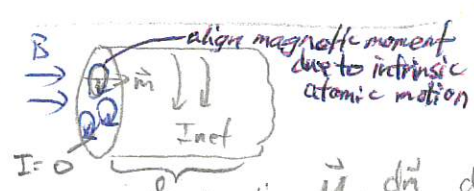 align magnetic moment
B
due to intrinsic
m
atomic motion
Inet
I=0
l
M dm